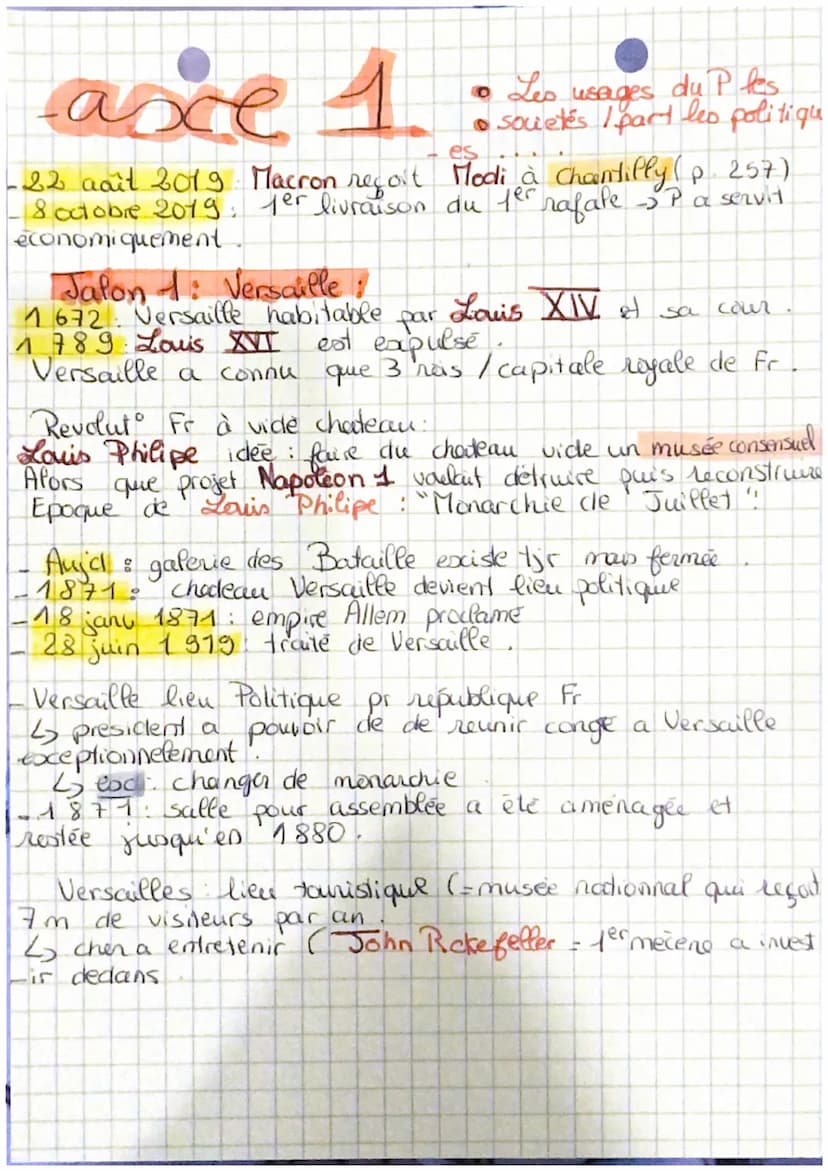 -axe 1
• Les usages du P les
• societés / part les politiqu
- es .....
- 22 août 2019 : Macron reçoit Modi à Chantilly (p. 257)
- 8 octobre 2019 : 1er livraison du 1er rafale -> P a servit
économiquement.
Jalon 1 : Versaille :
1672 : Versaille habitable par Louis XIV et sa cour.
1789 : Louis XVI est expulsé.
Versaille a connu que 3 rois / capitale royale de Fr.
Revolut° Fr à vidé chateau :
Louis Philipe idée : faire du chateau vide un musée consensuel
Alors que projet Napoléon 1 voulait détruire puis reconstruire
Epoque de Louis Philipe : "Monarchie de Juillet" !
- Aujd : galerie des Bataille existe tjr mais fermée.
- 1871 : chateau Versaille devient lieu politique
- 18 janv 1871 : empire Allem proclamé
- 28 juin 1919 : traité de Versaille.
- Versaille lieu Politique pr république Fr
↳ president a pouvoir de de reunir congé a Versaille
exceptionnelement.
↳ ex : changer de monarchie
- 1871 : salle pour assemblée a été aménagée et
restée jusqu'en 1880.
Versailles : lieu touristique (= musée nationnal qui reçoit
7m de visiteurs par an.
↳ cher a entretenir ( John Rckefeller = 1er mécène a invest
-ir dedans.